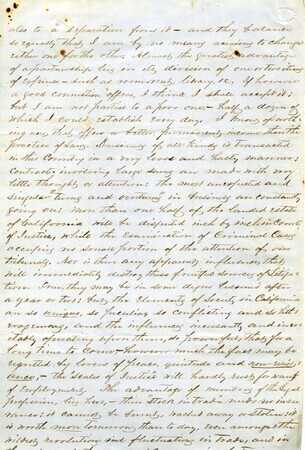 also to a separation from it — and they balance
so equally that I am by no means anxious to change
either one for the other. Almost the greatest advantage
of a partnership lies in its division of
of expenses such as room rent, library &c. If however
a good connection offers, I think I shall accept it;
but I am not partial to a poor one — half a dozen of
which I could establish every day. I know of noth-
ing now that offers a better permanent income than the
practice of Law. Business of all kinds is transacted
in this Country in a very loose and hasty manner;
Contracts involving large sums are made with very
little thought or attention: the most unexpected and
singular turns and overturns in business are constantly
going on: more than one half of the landed estate
of California will be disputed inch by inch in Courts
of Justice, while the examination of Criminal Cases
occupies no small portion of the attention of our
tribunals. Nor is there any apparent influence that
will immediately destroy these fruitful sources of litiga-
tion. True, they may be in some degree lessened after
a year or two: but the elements of Society in California
are so unique, so peculiar, so conflicting and so het-
erogeneous, and the influences necessarily and inev-
itably operating upon them, so powerful, that for a
long time to come — however much the fact may be
regretted by lovers of peace, quietude and
— the Scales of Justice will hardly rust for want
of employment. The advantage of members of the legal
profession, lies here, — their Stock in trade needs no in-
surance: it cannot be burnt, washed away or stolen: it
is worth more tomorrow than to day, even amongst the
wildest revolutions and fluctuations in trade, and in